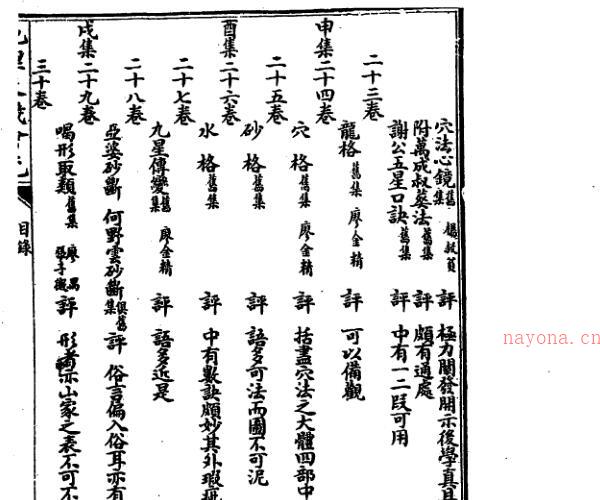 穴法心鏡舊集 楊叔貢 評 極力闡發開示後學真且
附萬成叔葬法舊集 評 頗有通處
謝公五星口訣舊集 評 中有一二段可用
二十三卷
龍格舊集 廖金精 評 可以備觀
申集二十四卷
穴格舊集 廖金精 評 括盡穴法之大體四部中
二十五卷
砂格舊集 評 語多可法而圖不可泥
酉集二十六卷
水格舊集 評 中有數訣頗妙其外瑕疵
二十七卷
九星傳變舊集 廖金精 評 語多近是
二十八卷
亞婆砂斷 何野雲砂斷俱舊集 評 俗言偏入俗耳亦有
戌集二十九卷
喝形取類舊集 廖禹 張子微 評 形者亦山家之表不可不
三十卷
目錄
nayona.cn